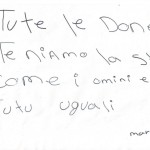 Tute le Done
Teniamo la s
come i omini e
tutu uguali
mar